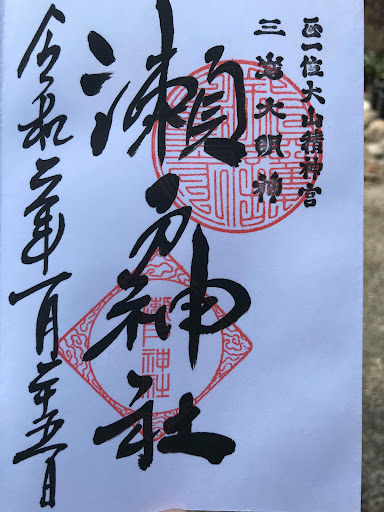 正一位大山積神宮
三島大明神
瀬戸神社
瀬戸神社
令和六年一月二十五日